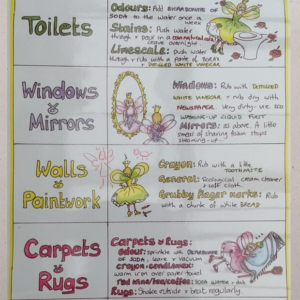 Toilets
Odours: Add BICARBONATE OF
SODA to the water once a
week
Stains: Push water
leave overnight
Limescale: Push water
through & rub with a paste of BORAX
& DISTILLED WHITE VINEGAR
Windows
&
Mirrors
Windows: Rub with DISTILLED
WHITE VINEGAR & rub dry with
NEWSPAPER. Very dirty - use ECO
WASHING-UP LIQUID FIRST
Mirrors: As above. A little
smear of shaving foam stops
steaming-up
Walls
&
Paintwork
Crayon: Rub with a little
TOOTHPASTE
General: Ecological cream cleaner
& soft cloth
Grubby finger marks: Rub
with a chunk of white BREAD
Carpets
&
Rugs
Carpets & Rugs:
odour: Sprinkle with BICARBONATE
OF SODA, leave & vacuum
crayon/candlewax:
warm iron over paper towel
red wine/tea/coffee: SODA WATER & dab
Rugs: Shake outside & beat regularly